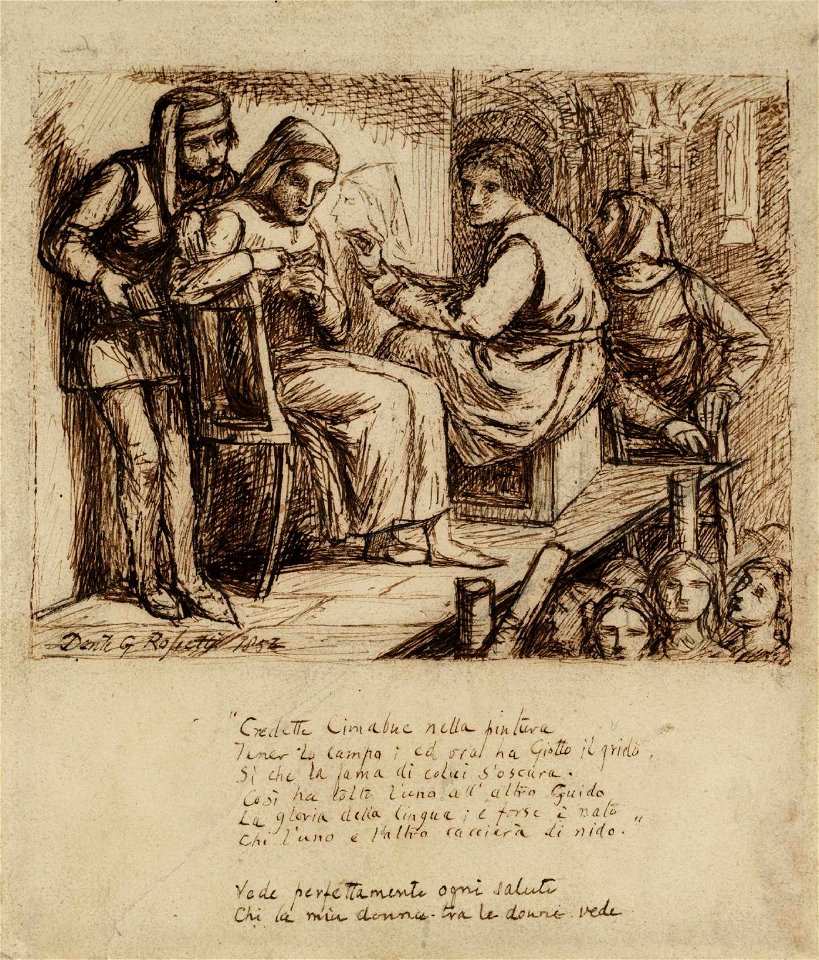 Dante G Rossetti 1852
"Credette Cimabue nella pintura
Tener lo campo; ed ora ha Giotto il grido,
Sì che la fama di colui s'oscura.
Così ha tolto l'uno all' altro Guido
La gloria della lingua; e forse è nato
Chi l'uno e l'altro caccierà di nido."
Vede perfettamente ogni salute
Chi la mia donna tra le donne vede